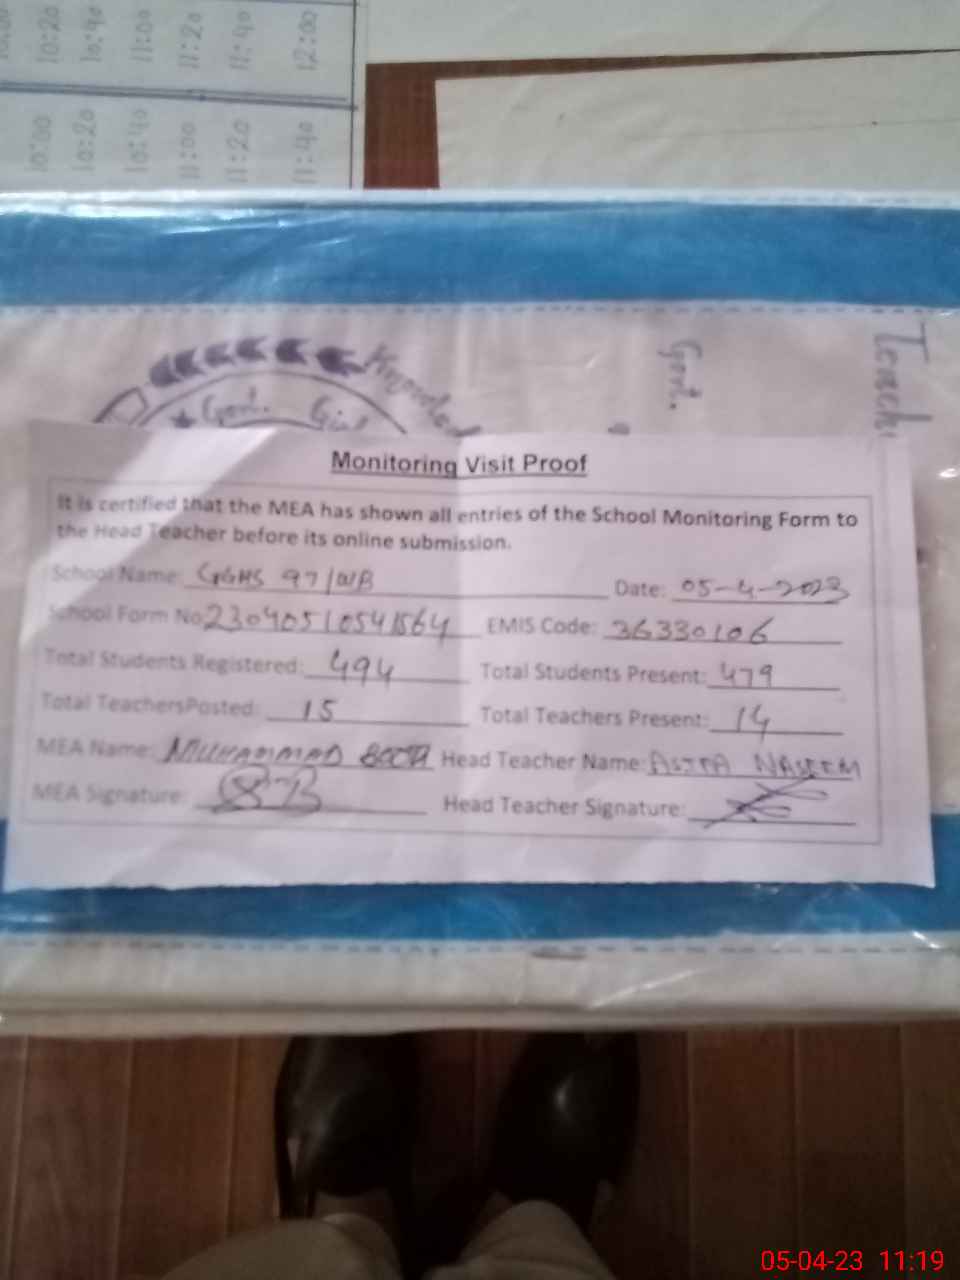 10:20 10:40 11:00 11:20 11:40 12:00
10:00 10:20 10:40 11:00 11:20 11:40
Teache
Govt.
Govt. Girl
Monitoring Visit Proof
It is certified that the MEA has shown all entries of the School Monitoring Form to
the Head Teacher before its online submission.
School Name: GGHS 97/WB Date: 05-4-2023
School Form No. EMIS Code: 36330106
Total Students Registered: 494 Total Students Present: 479
Total TeachersPosted: 15 Total Teachers Present: 14
MEA Name: MUHAMMAD BOOTA Head Teacher Name: NASEEM
MEA Signature: Head Teacher Signature:
05-04-23 11:19